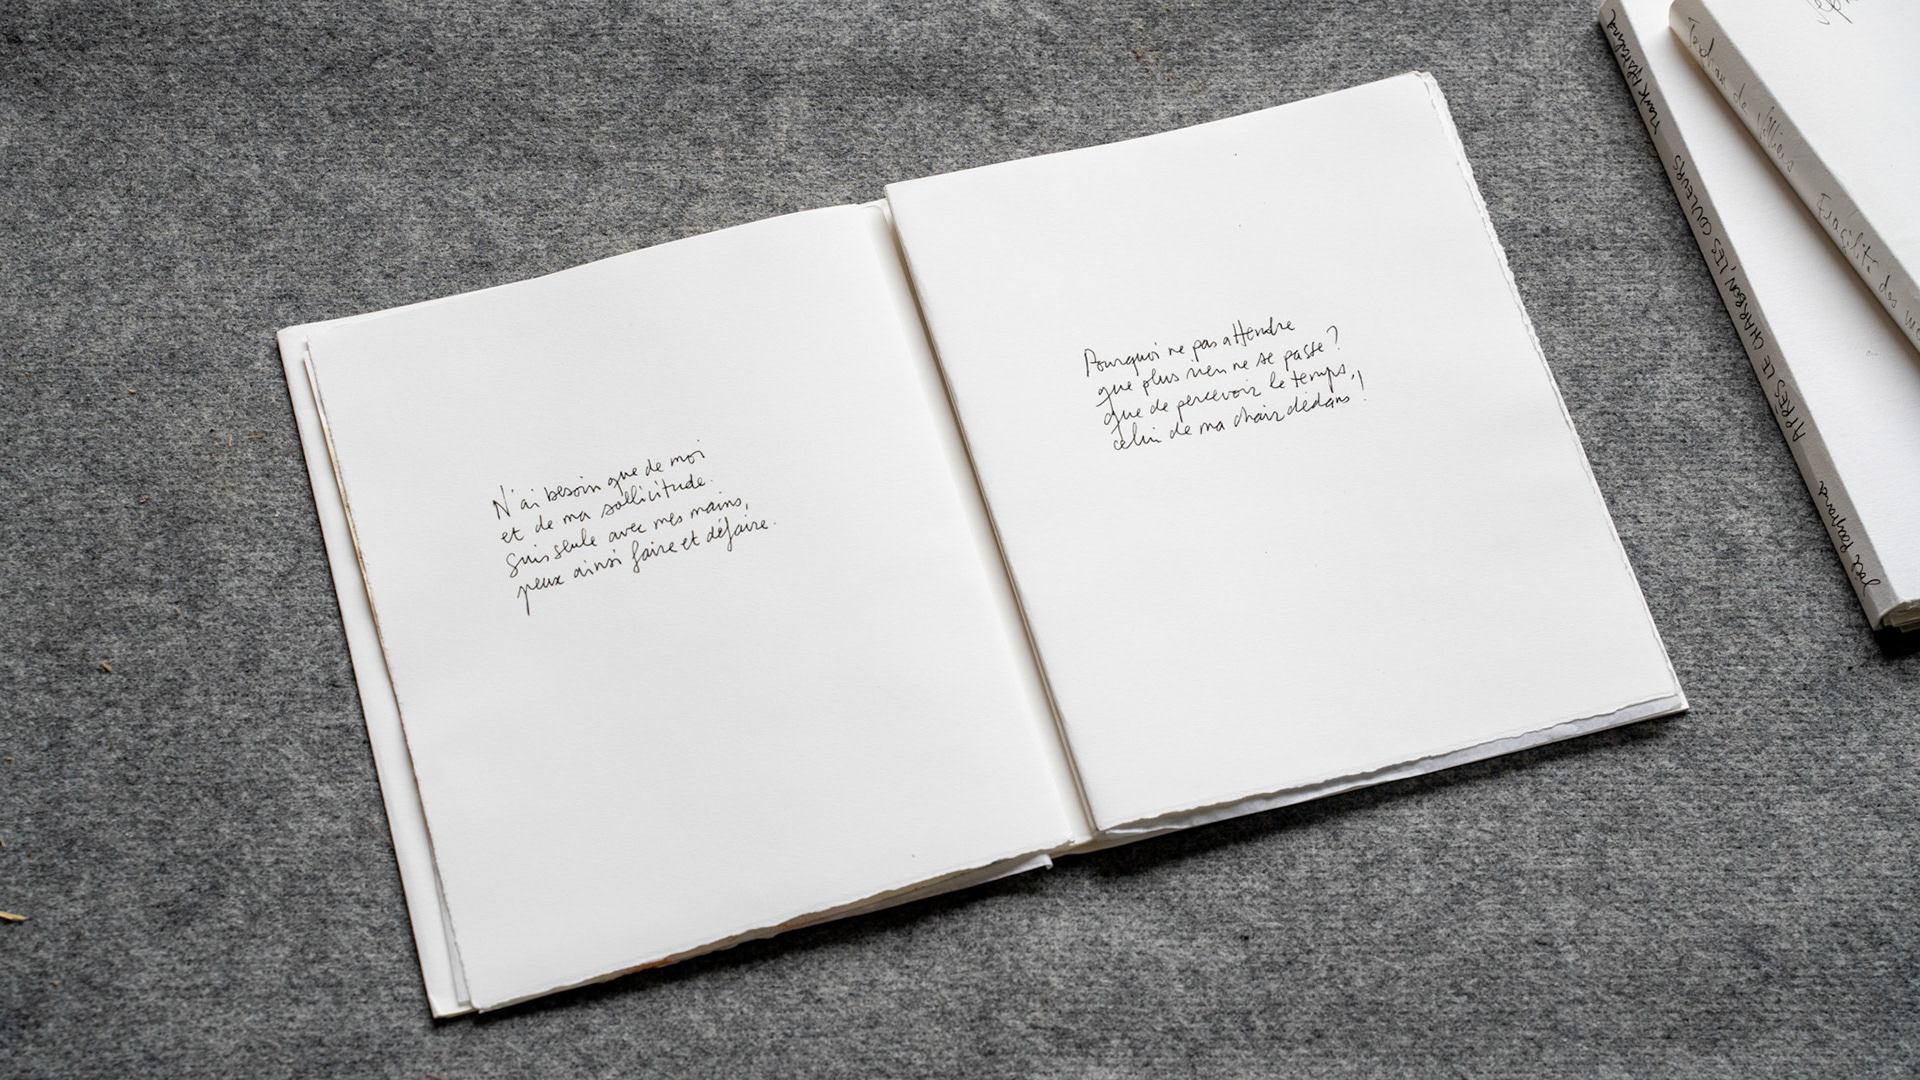 N'ai besoin que de moi
et de ma sollicitude.
Suis seule avec mes mains,
peux ainsi faire et défaire.
Pourquoi ne pas attendre
que plus rien ne se passe ?
que de percevoir le temps,
celui de ma chair dedans !
APRÈS LE CHARBON, LES COULEURS
de
Fragilité des